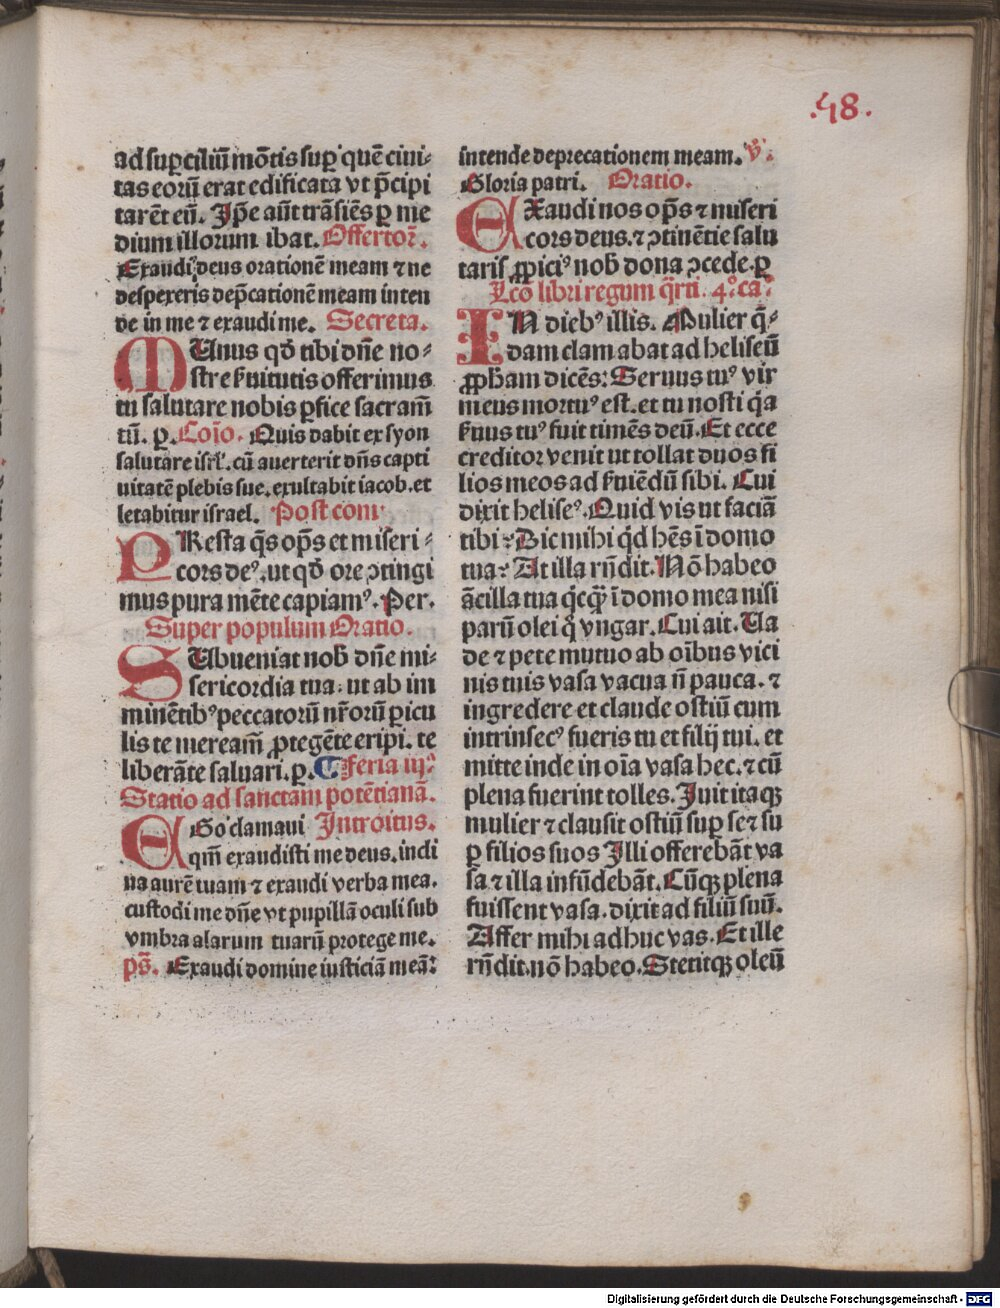 .48.
ad sup̲ciliū mōtis sup̲ quē ciui⸗
tas eorū erat edificata vt p̄cipi
tarēt eū. Ip̄e aūt trāsiēs p̲ me
dium illorum ibat. Offertoꝛ̄.
Exaudi deus orationē meam ⁊ ne
despexeris dep̄cationē meam inten
de in me ⁊ exaudi me. Secreta.
MUnus qd̄ tibi dn̄e no⸗
stre ẜuitutis offerimus
tu salutare nobis p̲fice sacram̄
tū. p̲. Coīo. Quis dabit ex syon
salutare isrl̄. cū auerterit dn̄s capti
uitatē plebis sue. exultabit iacob. et
letabitur israel. Post com̄
PResta q̄s op̄s et miseri⸗
cors deꝰ. ut qd̄ ore ꝯtingi
mus pura mēte capiamꝰ. Per.
Super populum Oratio.
SUbueniat nob̄ dn̄e mi⸗
sericordia tua: ut ab im
minētibꝰ peccatorū nr̄orū p̲icu
lis te meream̄ ꝓtegēte eripi. te
liberāte saluari. p̲. ¶ Feria iijᵃ
Statio ad sanctam potētianā.
EGo clamaui Introitus.
qm̄ exaudisti me deus. incli
na aurē tuam ⁊ exaudi verba mea.
custodi me dn̄e vt pupillā oculi sub
vmbra alarum tuarū protege me.
ps̄. Exaudi domine iusticiā meā:
intende deprecationem meam. ℣.
Gloria patri. Oratio.
EXaudi nos op̄s ⁊ miseri
cors deus. ⁊ ꝯtinētie salu
taris ꝓpiciꝰ nob̄ dona ꝯcede. p̲
Lc̄o libri regum q̄rti. 4.° ca°
IN diebꝰ illis. Mulier q̄⸗
dam clamabat ad heliseū
ꝓph̄am dicēs: Seruus tuꝰ vir
meus mortuꝰ est. et tu nosti q̄a
ẜuus tuꝰ fuit timēs deū. Et ecce
creditor venit ut tollat duos fi
lios meos ad ẜuiēdū sibi. Cui
dixit heliseꝰ. Quid vis ut faciā
tibi? Dic mihi q̄d hēs ī domo
tua? At illa rn̄dit. Nō habeo
ācilla tua q̄cq̄ꝫ ī domo mea nisi
parū olei q̄ vngar. Cui ait. Ua
de ⁊ pete mutuo ab oībus vici
nis tuis vasa vacua n̄ pauca. ⁊
ingredere et claude ostiū cum
intrinsecꝰ fueris tu et filij tui. et
mitte inde in oīa vasa hec. ⁊ cū
plena fuerint tolles. Iuit itaqꝫ
mulier ⁊ clausit ostiū sup̲ se ⁊ su
p̲ filios suos Illi offerebāt va
sa ⁊ illa infūdebāt. Cūqꝫ plena
fuissent vasa. dixit ad filiū suū.
Affer mihi adhuc vas. Et ille
rn̄dit. nō habeo. Stetitqꝫ oleū
Digitalisierung gefördert durch die Deutsche Forschungsgemeinschaft - DFG